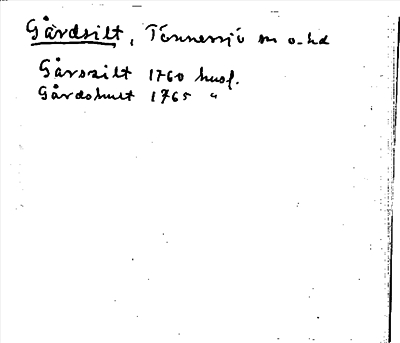 Gårdsilt, Tönnersjö sn o. hd
Gårszilt 1760 husf.
Gårdshult 1765 "